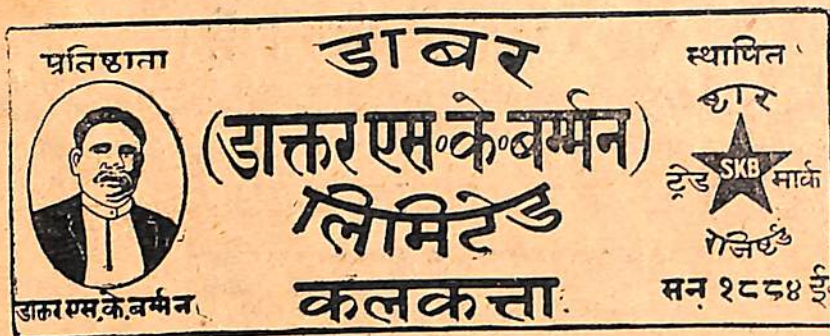 प्रतिष्ठाता
डाक्तर एस. के. बर्म्मन
डाबर
(डाक्तर एस॰के॰बर्म्मन)
लिमिटेड
कलकत्ता
स्थापित
ष्टार
ट्रेड SKB मार्क
रेजिष्टर्ड
सन् १८८४ ई